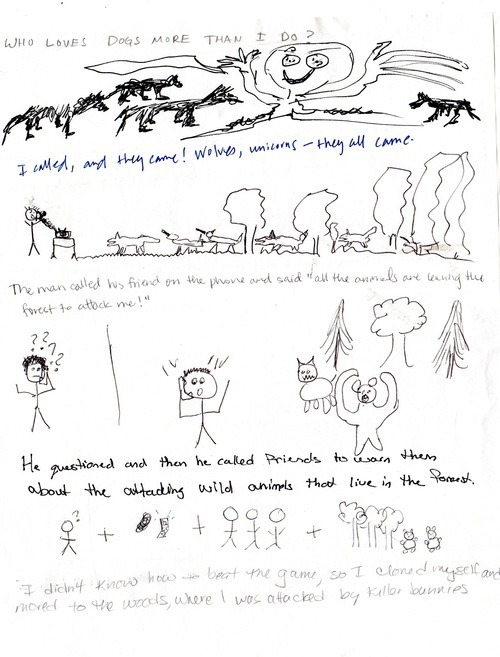 WHO LOVES DOGS MORE THAN I DO?
I called, and they came! Wolves, unicorns – they all came.
The man called his friend on the phone and said "all the animals are leaving the
forest to attack me!"
? ? ? ?
He questioned and then he called Friends to warn them
about the attacking wild animals that live in the forrest.
? + + +
"I didn't know how to beat the game, so I cloned myself and
moved to the woods, where I was attacked by killer bunnies